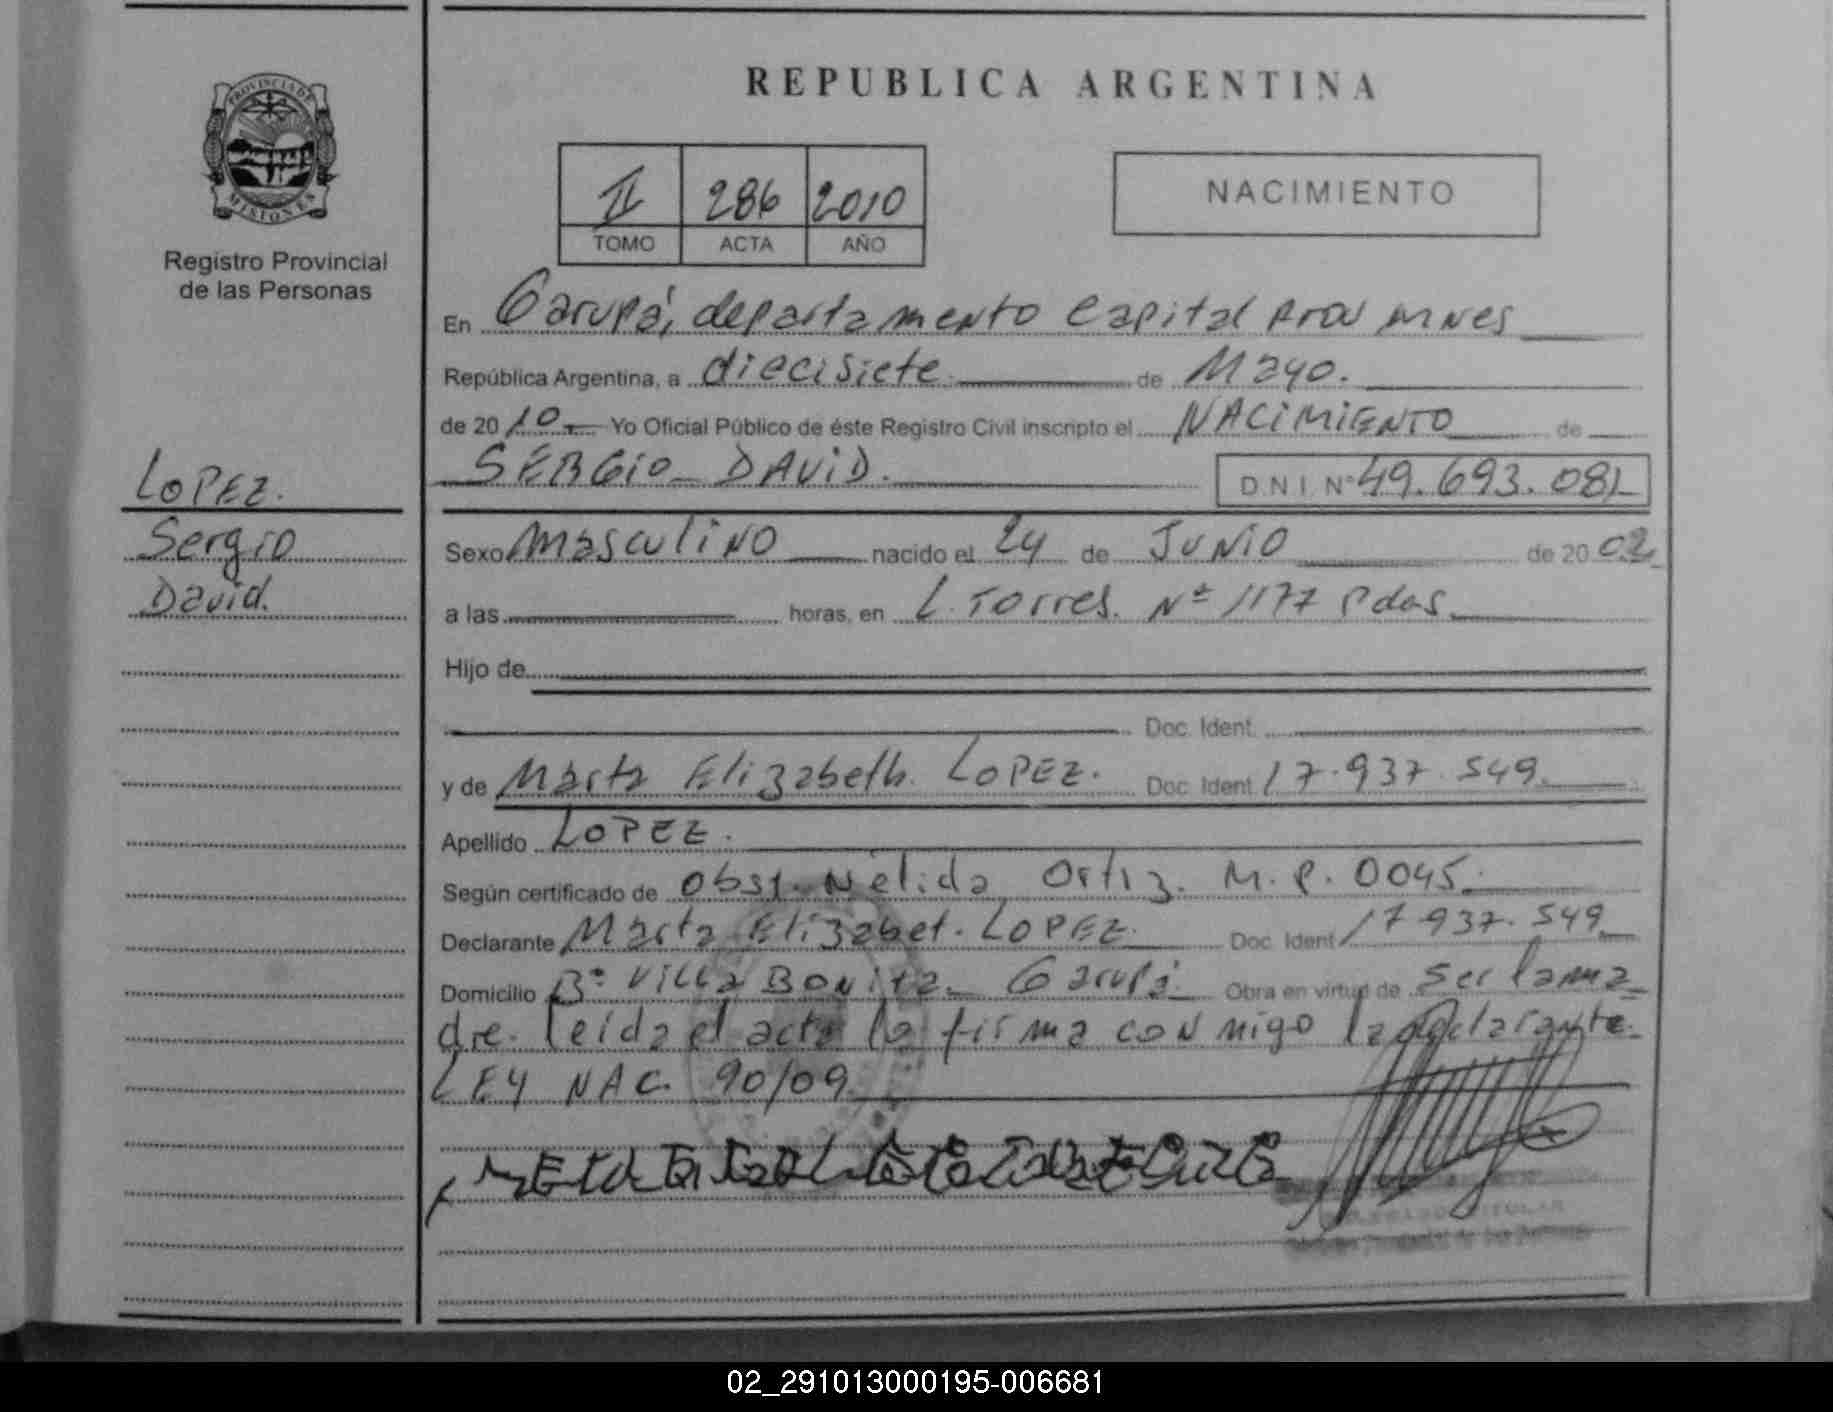 REPUBLICA ARGENTINA
PROVINCIA DE
MISIONES
Registro Provincial
de las Personas
II 286 2010
TOMO ACTA AÑO
NACIMIENTO
LOPEZ.
Sergio
David.
En Garupá, departamento Capital Prov Mnes
República Argentina, a diecisiete de Mayo.
de 2010 Yo Oficial Público de éste Registro Civil inscripto el NACIMIENTO de
SERGIO DAVID. D.N.I. Nº 49.693.081
Sexo Masculino nacido el 24 de JUNIO de 2002
a las horas, en L. Torres. Nº 1177 Pdas
Hijo de
Doc. Ident.
y de Marta Elizabeth LOPEZ. Doc. Ident 17.937.549
Apellido LOPEZ.
Según certificado de Obst. Nélida Ortiz. M.P. 0045.
Declarante Marta Elizabet. LOPEZ. Doc. Ident 17.937.549
Domicilio Bº Villa Bonita Garupá Obra en virtud de ser la ma
dre. leida el acta la firma con migo la declarante.
LEY NAC. 90/09
02_291013000195-006681